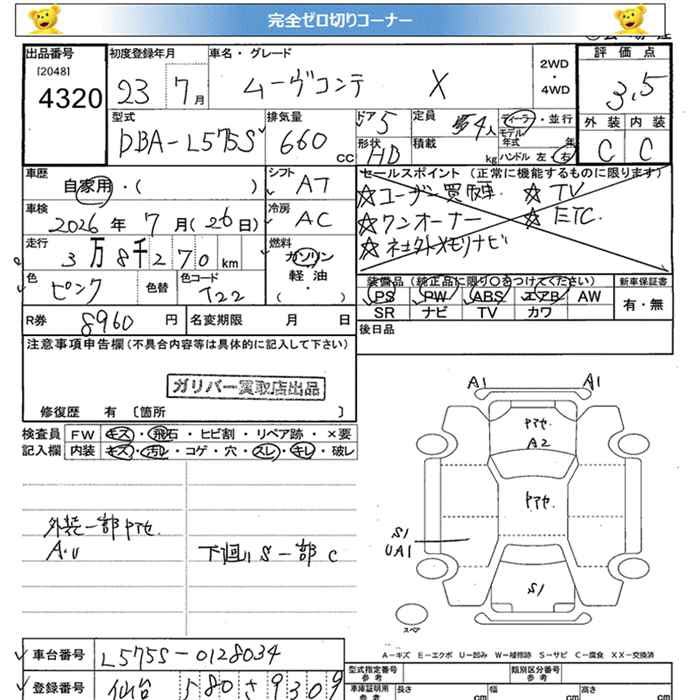 完全ゼロ切りコーナー
出品番号 初度登録年月 車名・グレード 評価点
[2048]
4320 23 7月 ムーヴコンテ X 2WD・4WD 3.5
型式 排気量 ドア 5 定員 4人 ディーラー・並行 外装 内装
DBA-L575S 660cc 形状 HD 積載 kg モデル年式 年 C C
ハンドル 左 右
車歴 自家用・( ) シフト AT セールスポイント(正常に機能するものに限ります)
☆ユーザー買取車 ☆TV
車検 2026年 7月(26日) 冷房 AC ☆ワンオーナー ☆ETC
☆社外メモリナビ
走行 3万8千270km 燃料 ガソリン 軽油 ( ・ )
色 ピンク 色替 色コード T22
装備品(純正品に限り○をつけてください) 新車保証書
PS PW ABS エアB AW 有・無
SR ナビ TV カワ
R券 8960円 名変期限 月 日 後日品
注意事項申告欄(不具合内容等は具体的に記入して下さい)
ガリバー買取店出品
修復歴 有 〔箇所 〕
検査員 FW キズ・飛石・ヒビ割・リペア跡・×要
記入欄 内装 キズ・汚レ・コゲ・穴・スレ・キレ・破レ
A1 A1
ヤケアセ
A2
ヤケアセ
S1
UA1
S1
外装一部ヤケアセ
A・U
下回りS一部C
スペア
A-キズ E-エクボ U-凹み W-補修跡 S-サビ C-腐食 XX-交換済
車台番号 L575S-0128034
型式指定番号 参考 類別区分番号 参考
登録番号 仙台 580 さ 9309
車庫証明用 参考 長さ cm 幅 cm 高さ cm